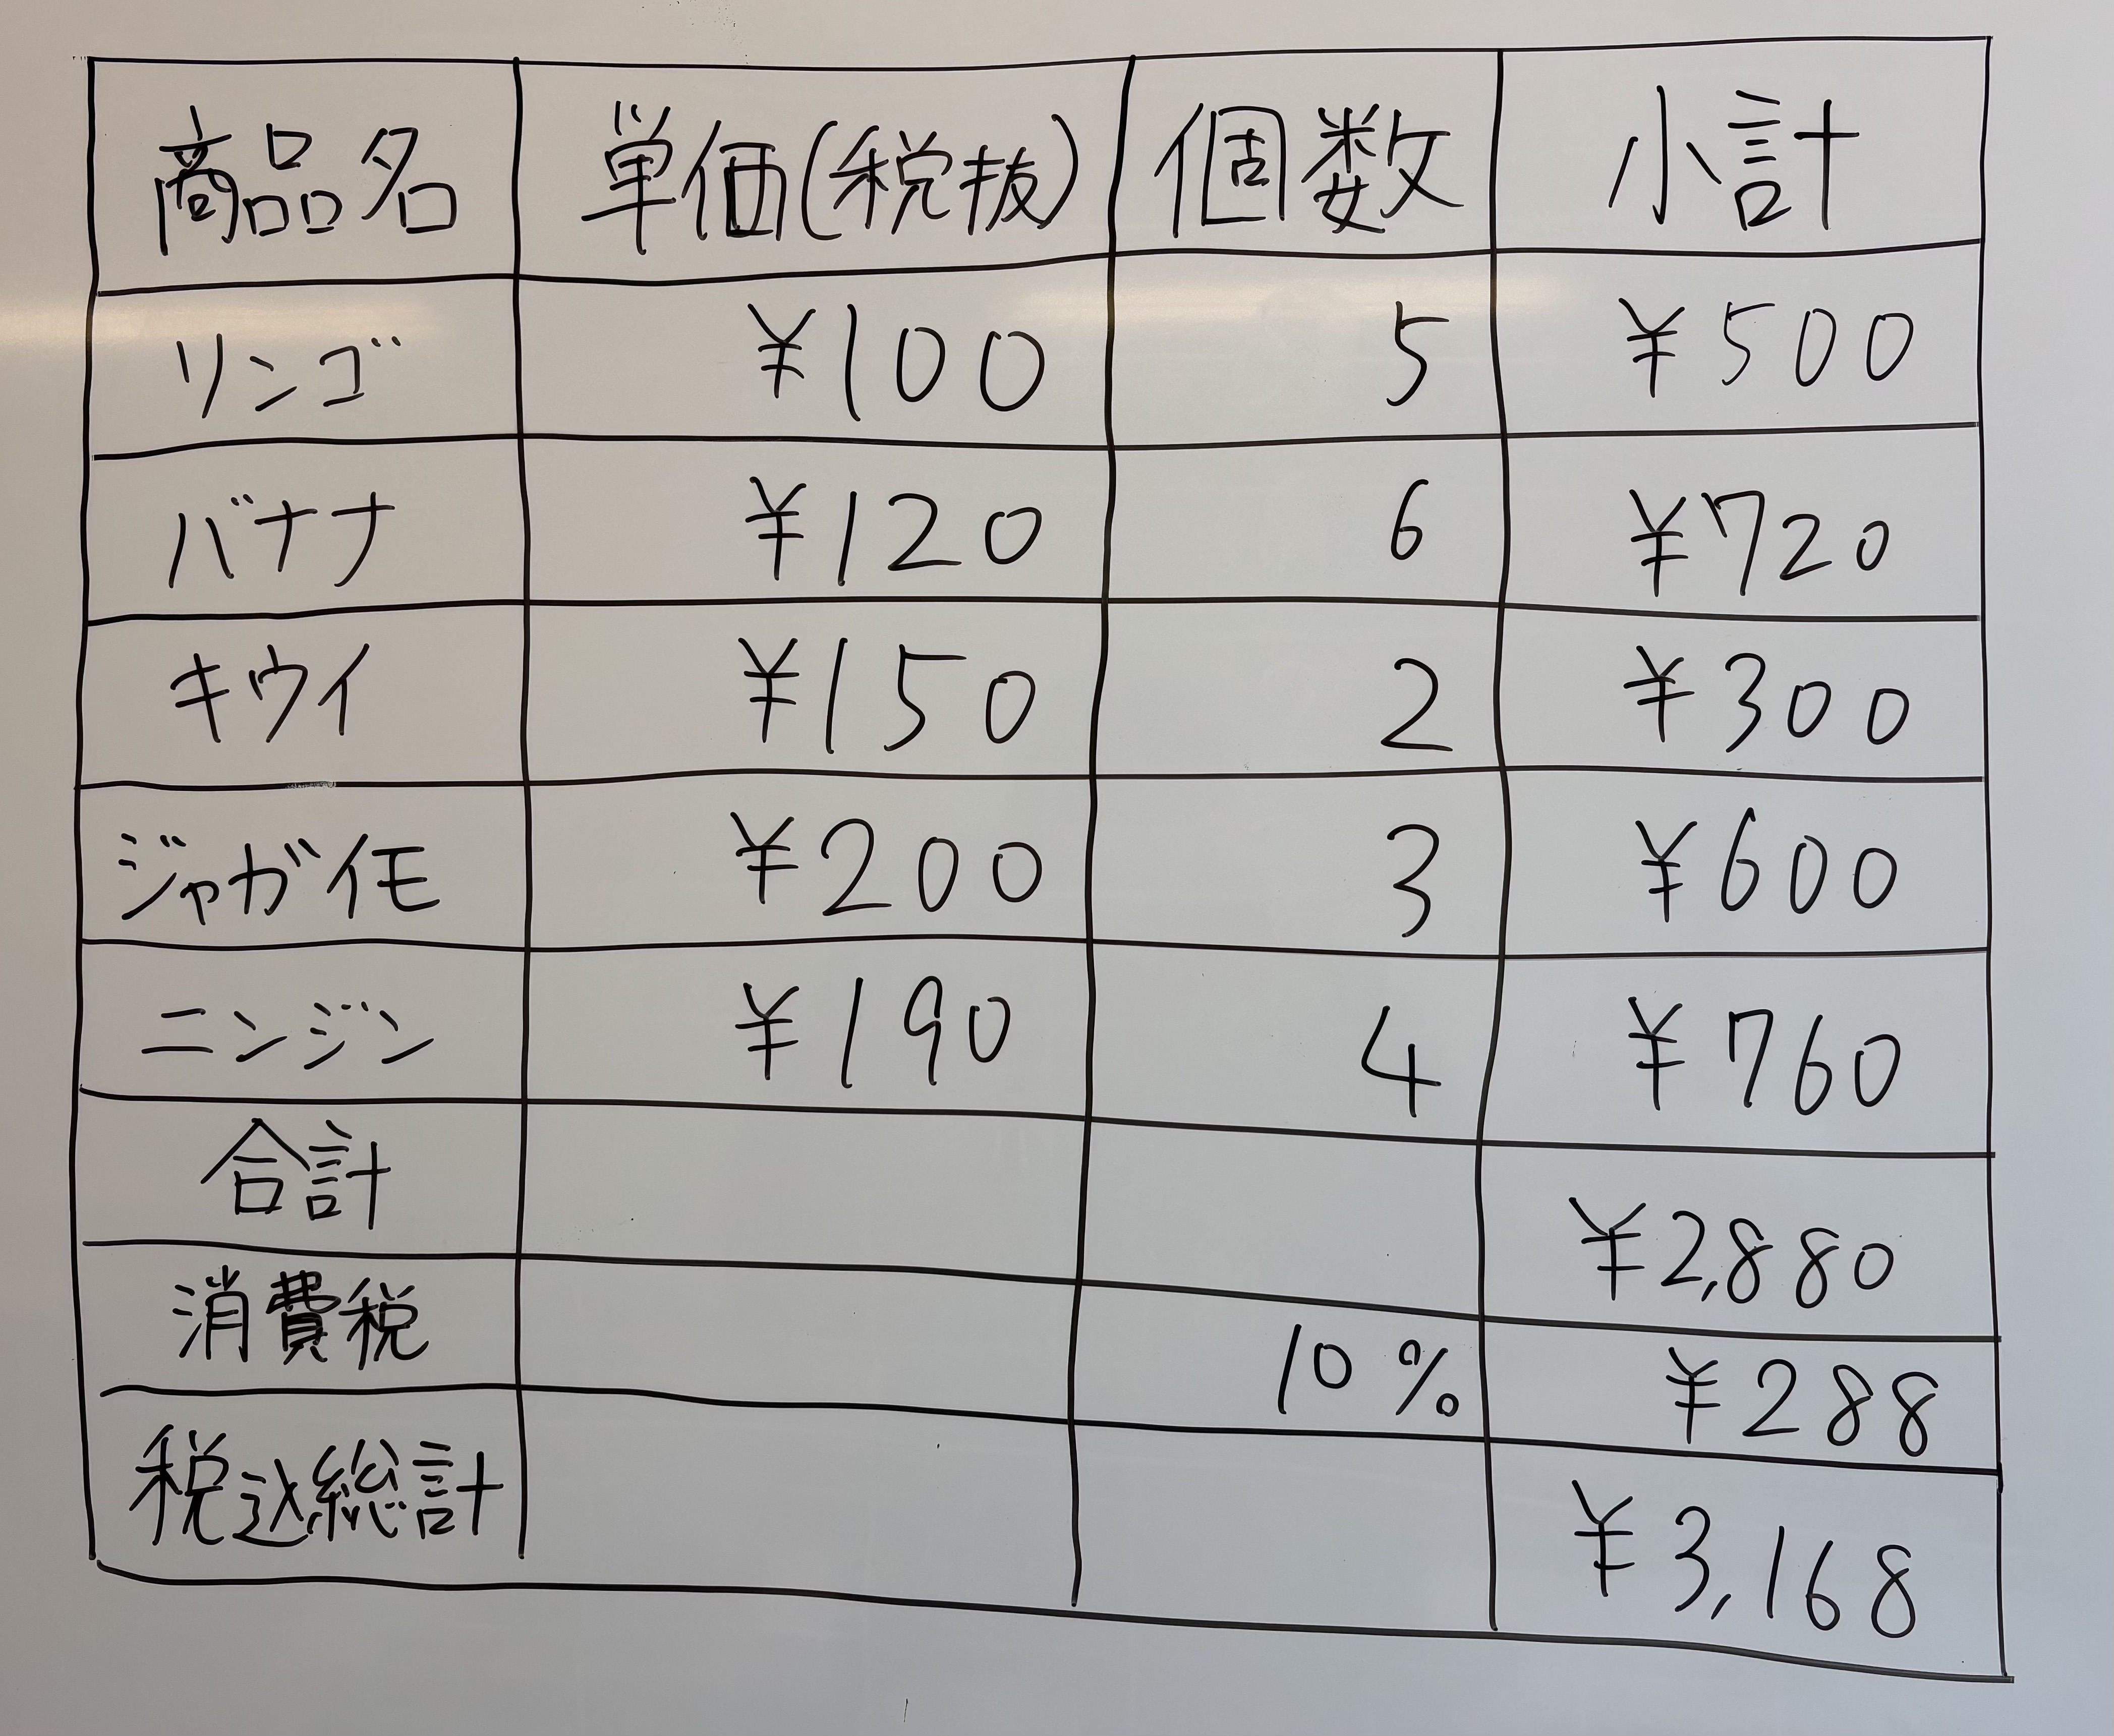 商品名 単価(税抜) 個数 小計
リンゴ ¥100 5 ¥500
バナナ ¥120 6 ¥720
キウイ ¥150 2 ¥300
ジャガイモ ¥200 3 ¥600
ニンジン ¥190 4 ¥760
合計 ¥2,880
消費税 10% ¥288
税込総計 ¥3,168